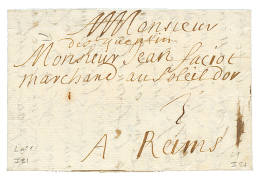 Monsieur
de St quentin
Monsieur Jean Faciot
marchand au Soleil dor
A Reims